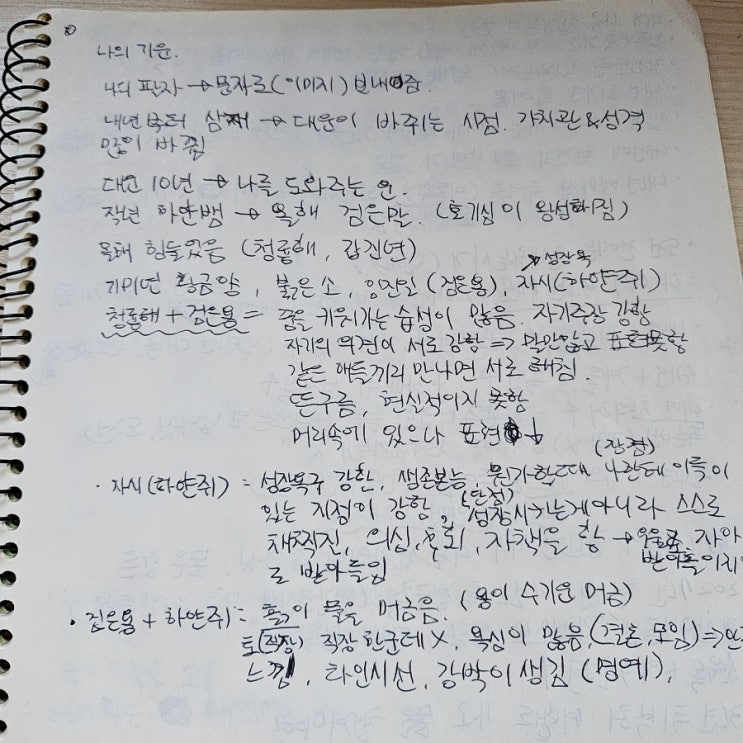 나의 기운.
나의 팔자 → 문자로(이미지) 보내줌.
내년부터 삼재 → 대운이 바뀌는 시점. 가치관 & 성격
많이 바뀜
대운 10년 → 나를 도와주는 운.
작년 하얀뱀 → 올해 검은말. (호기심이 왕성해짐)
올해 힘들었음 (청룡해, 갑진년)
→ 성장욕
기미년 황금양, 붉은소, 임진일(검은용), 자시(하얀쥐)
청룡해 + 검은용 = 꿈을 키워가는 습성이 많음. 자기주장 강함
자기의 의견이 서로 강함 => 말안하고 표현못함
같은 애들끼리 만나면 서로 해침.
뜬구름, 현실적이지 못함
머리속에 있으나 표현 ↓
· 자시(하얀쥐) = 성장욕구 강함, 생존본능, 뭔가할때 나한테 이득이 (장점)
있는 지점이 강함, (단점) 성장시키는게 아니라 스스로
채찍질, 의심, 후회, 자책을 함 → 자아
로 받아들임
· 검은용 + 하얀쥐 = 흙이 물을 머금음. (용이 수기운 머금)
토(직장) 직장 한군데 X, 욕심이 많음, (결혼, 모임) =>
느낌, 타인시선, 강박이 생김 (명예),